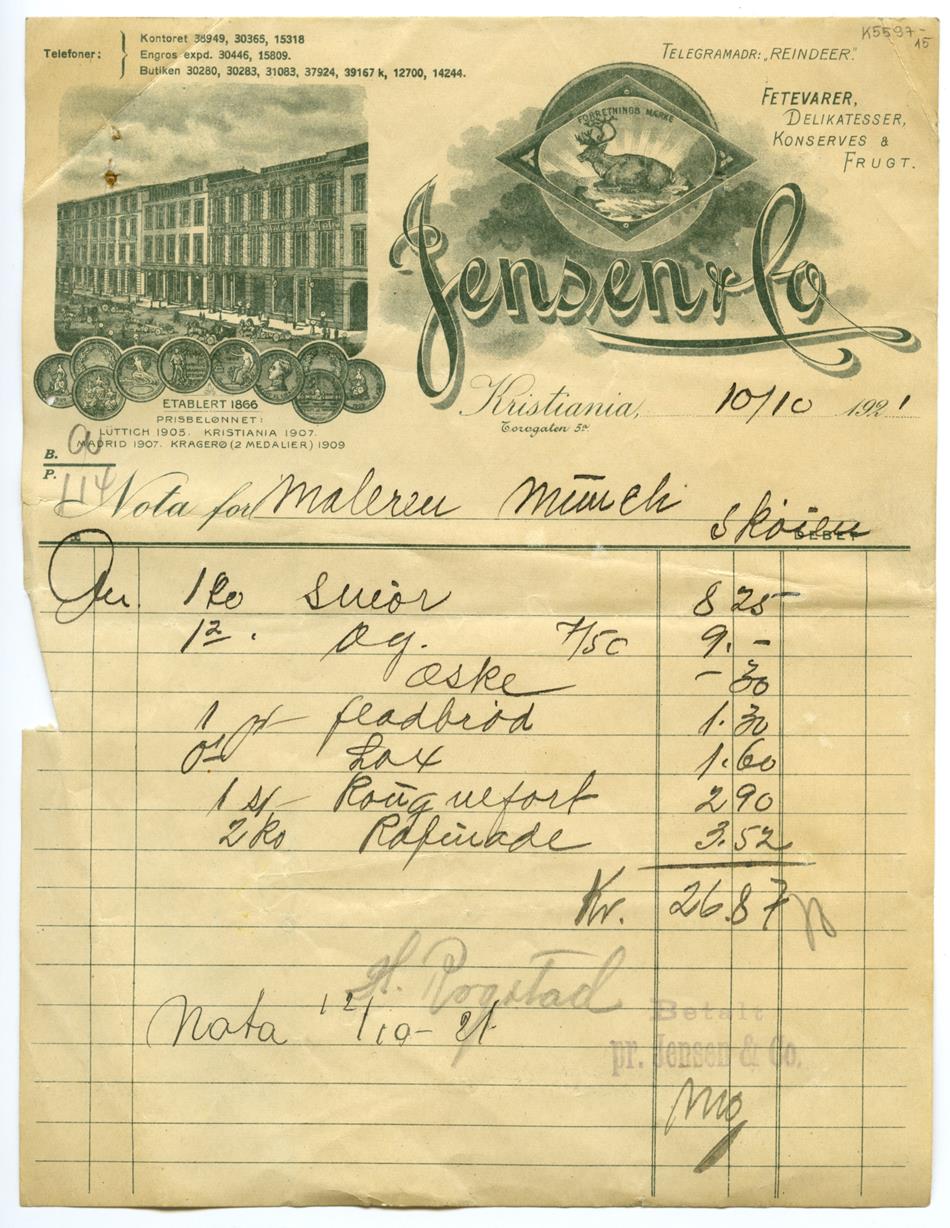 K5597-15
Telefoner: Kontoret 38949, 30365, 15318
Engros expd. 30446, 15809.
Butiken 30280, 30283, 31083, 37924, 39167 k, 12700, 14244.
TELEGRAMADR: „REINDEER".
FETEVARER,
DELIKATESSER,
KONSERVES &
FRUGT.
FORRETNINGS MÆRKE
Jensen & Co
ETABLERT 1866
PRISBELØNNET:
LÜTTICH 1905. KRISTIANIA 1907.
MADRID 1907. KRAGERØ (2 MEDALIER) 1909
Kristiania, 10/10 1921
Torvgaten 5a
B.
P. 114
Nota for Maleren Münch
Skøien
DEBET
1 ko Smör 8 25
12 . Æg. 7/50 9. -
æske - 30
1 pk fladbröd 1.30
Lax 1.60
1 st Rouquefort 2 90
2 ko Rafinade 3.52
Kr. 26.87
H. Rogstad
Nota 12/10-21
Betalt
pr. Jensen & Co.